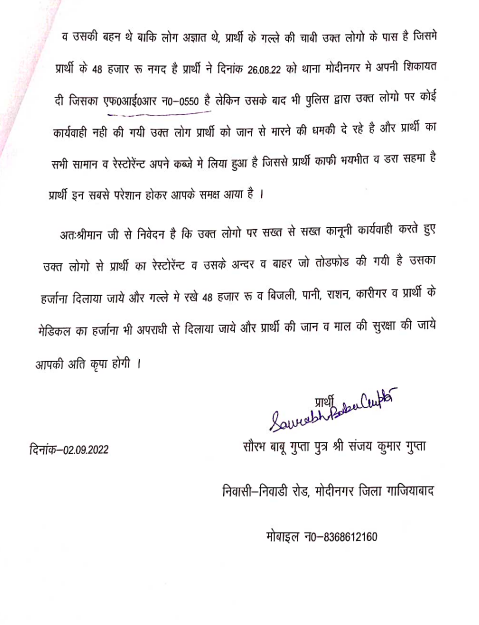 व उसकी बहन थे बाकि लोग अज्ञात थे, प्रार्थी के गल्ले की चाबी उक्त लोगो के पास है जिसमे
प्रार्थी के 48 हजार रू नगद है प्रार्थी ने दिनांक 26.08.22 को थाना मोदीनगर मे अपनी शिकायत
दी जिसका एफ0आई0आर न0-0550 है लेकिन उसके बाद भी पुलिस द्वारा उक्त लोगो पर कोई
कार्यवाही नही की गयी उक्त लोग प्रार्थी को जान से मारने की धमकी दे रहे है और प्रार्थी का
सभी सामान व रेस्टोरेंन्ट अपने कब्जे मे लिया हुआ है जिससे प्रार्थी काफी भयभीत व डरा सहमा है
प्रार्थी इन सबसे परेशान होकर आपके समक्ष आया है ।
अतःश्रीमान जी से निवेदन है कि उक्त लोगो पर सख्त से सख्त कानूनी कार्यवाही करते हुए
उक्त लोगो से प्रार्थी का रेस्टोरेंन्ट व उसके अन्दर व बाहर जो तोडफोड की गयी है उसका
हर्जाना दिलाया जाये और गल्ले मे रखे 48 हजार रू व बिजली, पानी, राशन, कारीगर व प्रार्थी के
मेडिकल का हर्जाना भी अपराधी से दिलाया जाये और प्रार्थी की जान व माल की सुरक्षा की जाये
आपकी अति कृपा होगी ।
प्रार्थी
Saurabh Babu Gupta
दिनांक-02.09.2022
सौरभ बाबू गुप्ता पुत्र श्री संजय कुमार गुप्ता
निवासी-निवाडी रोड, मोदीनगर जिला गाजियाबाद
मोबाइल न0-8368612160